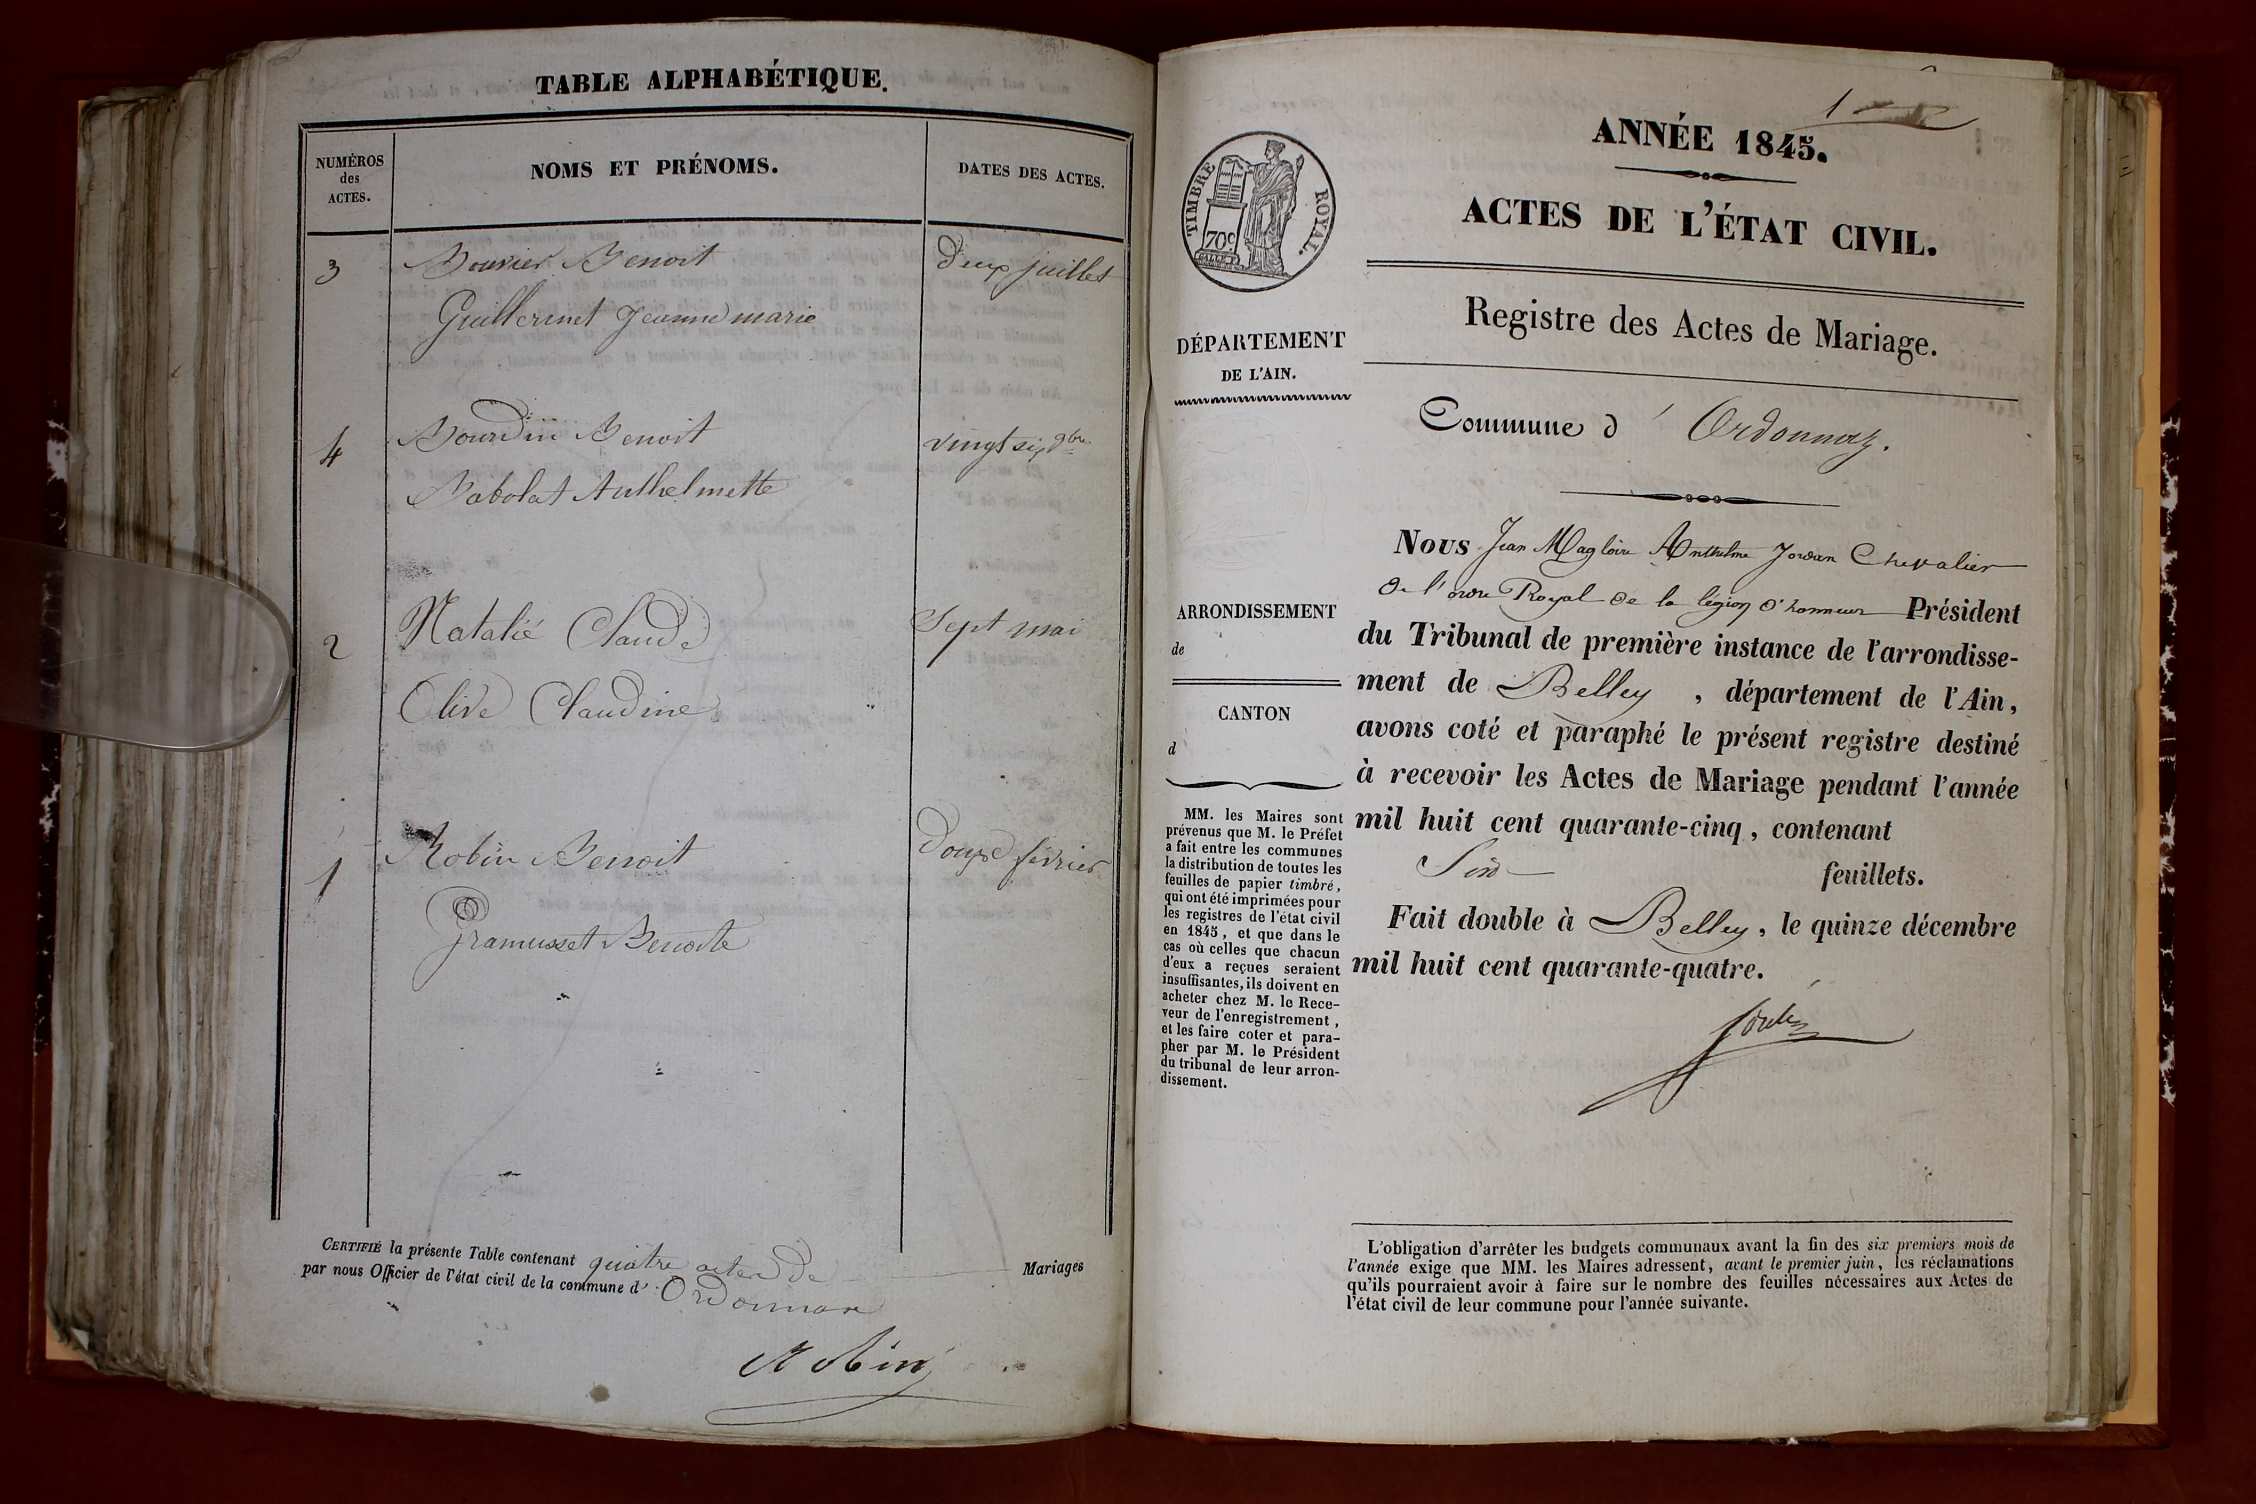 TABLE ALPHABÉTIQUE.
NUMÉROS
des
ACTES.
NOMS ET PRÉNOMS.
DATES DES ACTES.
3
Bouvier Benoit
deux juillet
Guillermet Jeanne marie
4
Bourdin Benoit
vingt six 9bre
Babolat Anthelmette
2
Natalié Claude
Sept mai
Olive Claudine
1
Robin Benoit
Douze février
Gramusset Benoite
CERTIFIÉ la présente Table contenant quatre actes de Mariages
par nous Officier de l'état civil de la commune d' Ordonnaz
Robin
1
ANNÉE 1845.
ACTES DE L'ÉTAT CIVIL.
TIMBRE ROYAL.
70c
Registre des Actes de Mariage.
DÉPARTEMENT
DE L'AIN.
Commune d' Ordonnaz.
ARRONDISSEMENT
de
CANTON
d
MM. les Maires sont
prévenus que M. le Préfet
a fait entre les communes
la distribution de toutes les
feuilles de papier timbré,
qui ont été imprimées pour
les registres de l'état civil
en 1845, et que dans le
cas où celles que chacun
d'eux a reçues seraient
insuffisantes, ils doivent en
acheter chez M. le Rece-
veur de l'enregistrement,
et les faire coter et para-
pher par M. le Président
du tribunal de leur arron-
dissement.
Nous Jean Magloire Anthelme Jordan Chevalier
de l'ordre Royal de la légion d'honneur Président
du Tribunal de première instance de l'arrondisse-
ment de Belley, département de l'Ain,
avons coté et paraphé le présent registre destiné
à recevoir les Actes de Mariage pendant l'année
mil huit cent quarante-cinq, contenant
feuillets.
Fait double à Belley, le quinze décembre
mil huit cent quarante-quatre.
L'obligation d'arrêter les budgets communaux avant la fin des six premiers mois de
l'année exige que MM. les Maires adressent, avant le premier juin, les réclamations
qu'ils pourraient avoir à faire sur le nombre des feuilles nécessaires aux Actes de
l'état civil de leur commune pour l'année suivante.